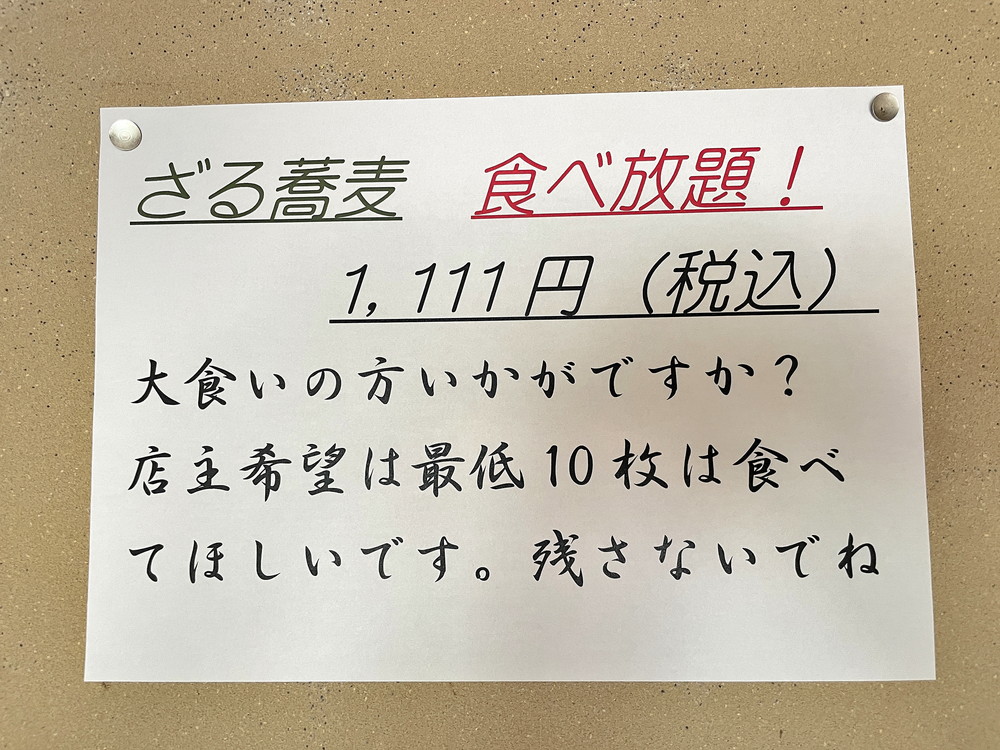 ざる蕎麦 食べ放題！
1,111円（税込）
大食いの方いかがですか？
店主希望は最低10枚は食べ
てほしいです。残さないでね